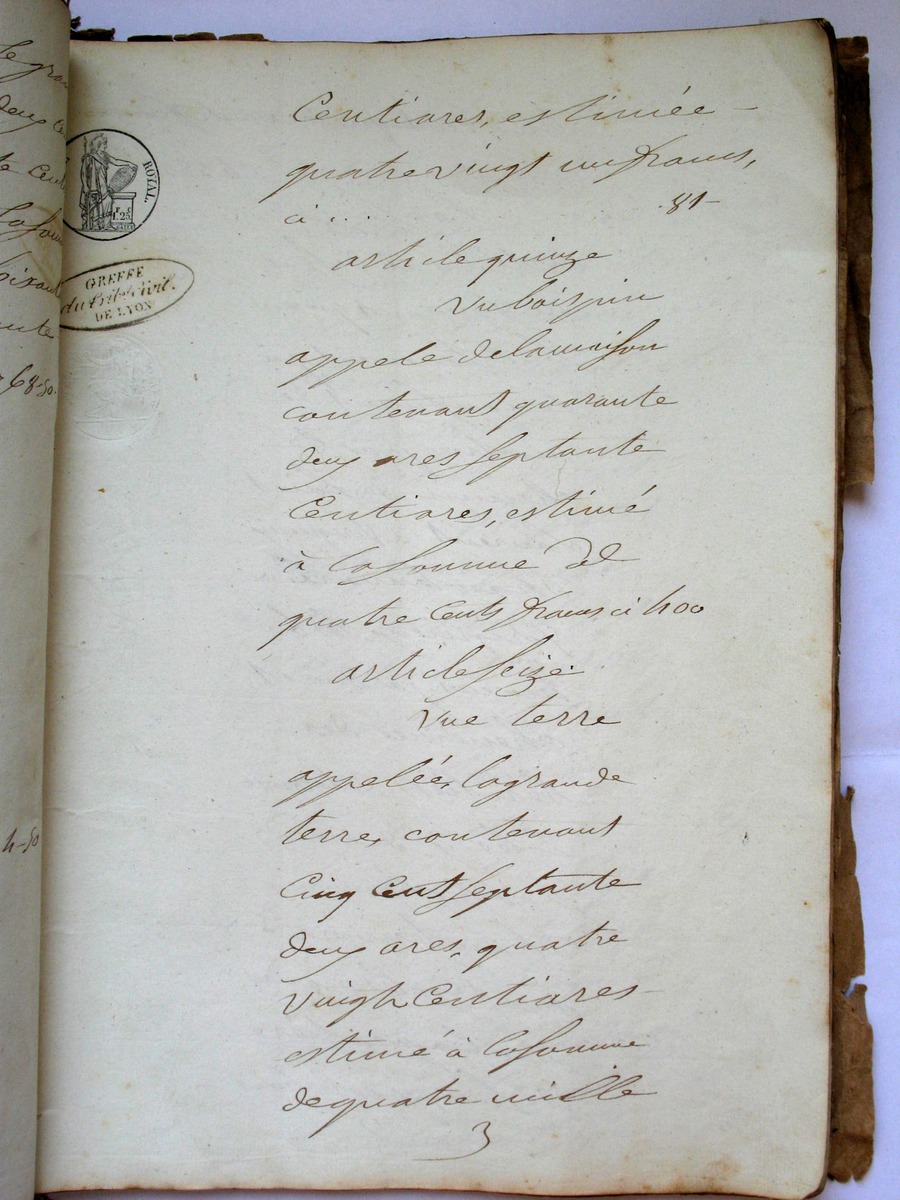 ROYAL.
1F. 25C.
GREFFE
du trib. civil.
DE LYON
68-50.
4-50
Centiares, estimée -
quatre vingt un francs,
ci ... 81-
article quinze
Un bois pin
appelé de la maison
contenant quarante
deux ares septante
Centiares, estimé
à la somme de
quatre Cents francs ci 400
article seize.
Une terre
appelée, la grande
terre, contenant
Cinq Cent septante
deux ares, quatre
vingt Centiares
estimé à la somme
de quatre mille
3